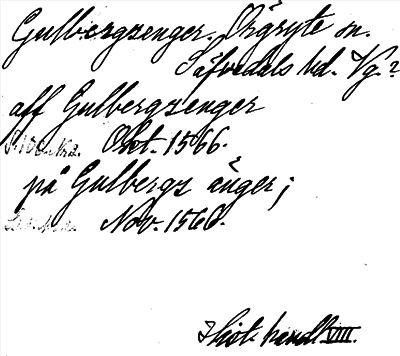 Gulbergzenger. Örgryte sn.
Säfvedals hd. Vg.?
aff Gulbergzenger
Okt. 1566.
på Gulbergz änger;
Nov. 1566.
Hist. handl. VIII.